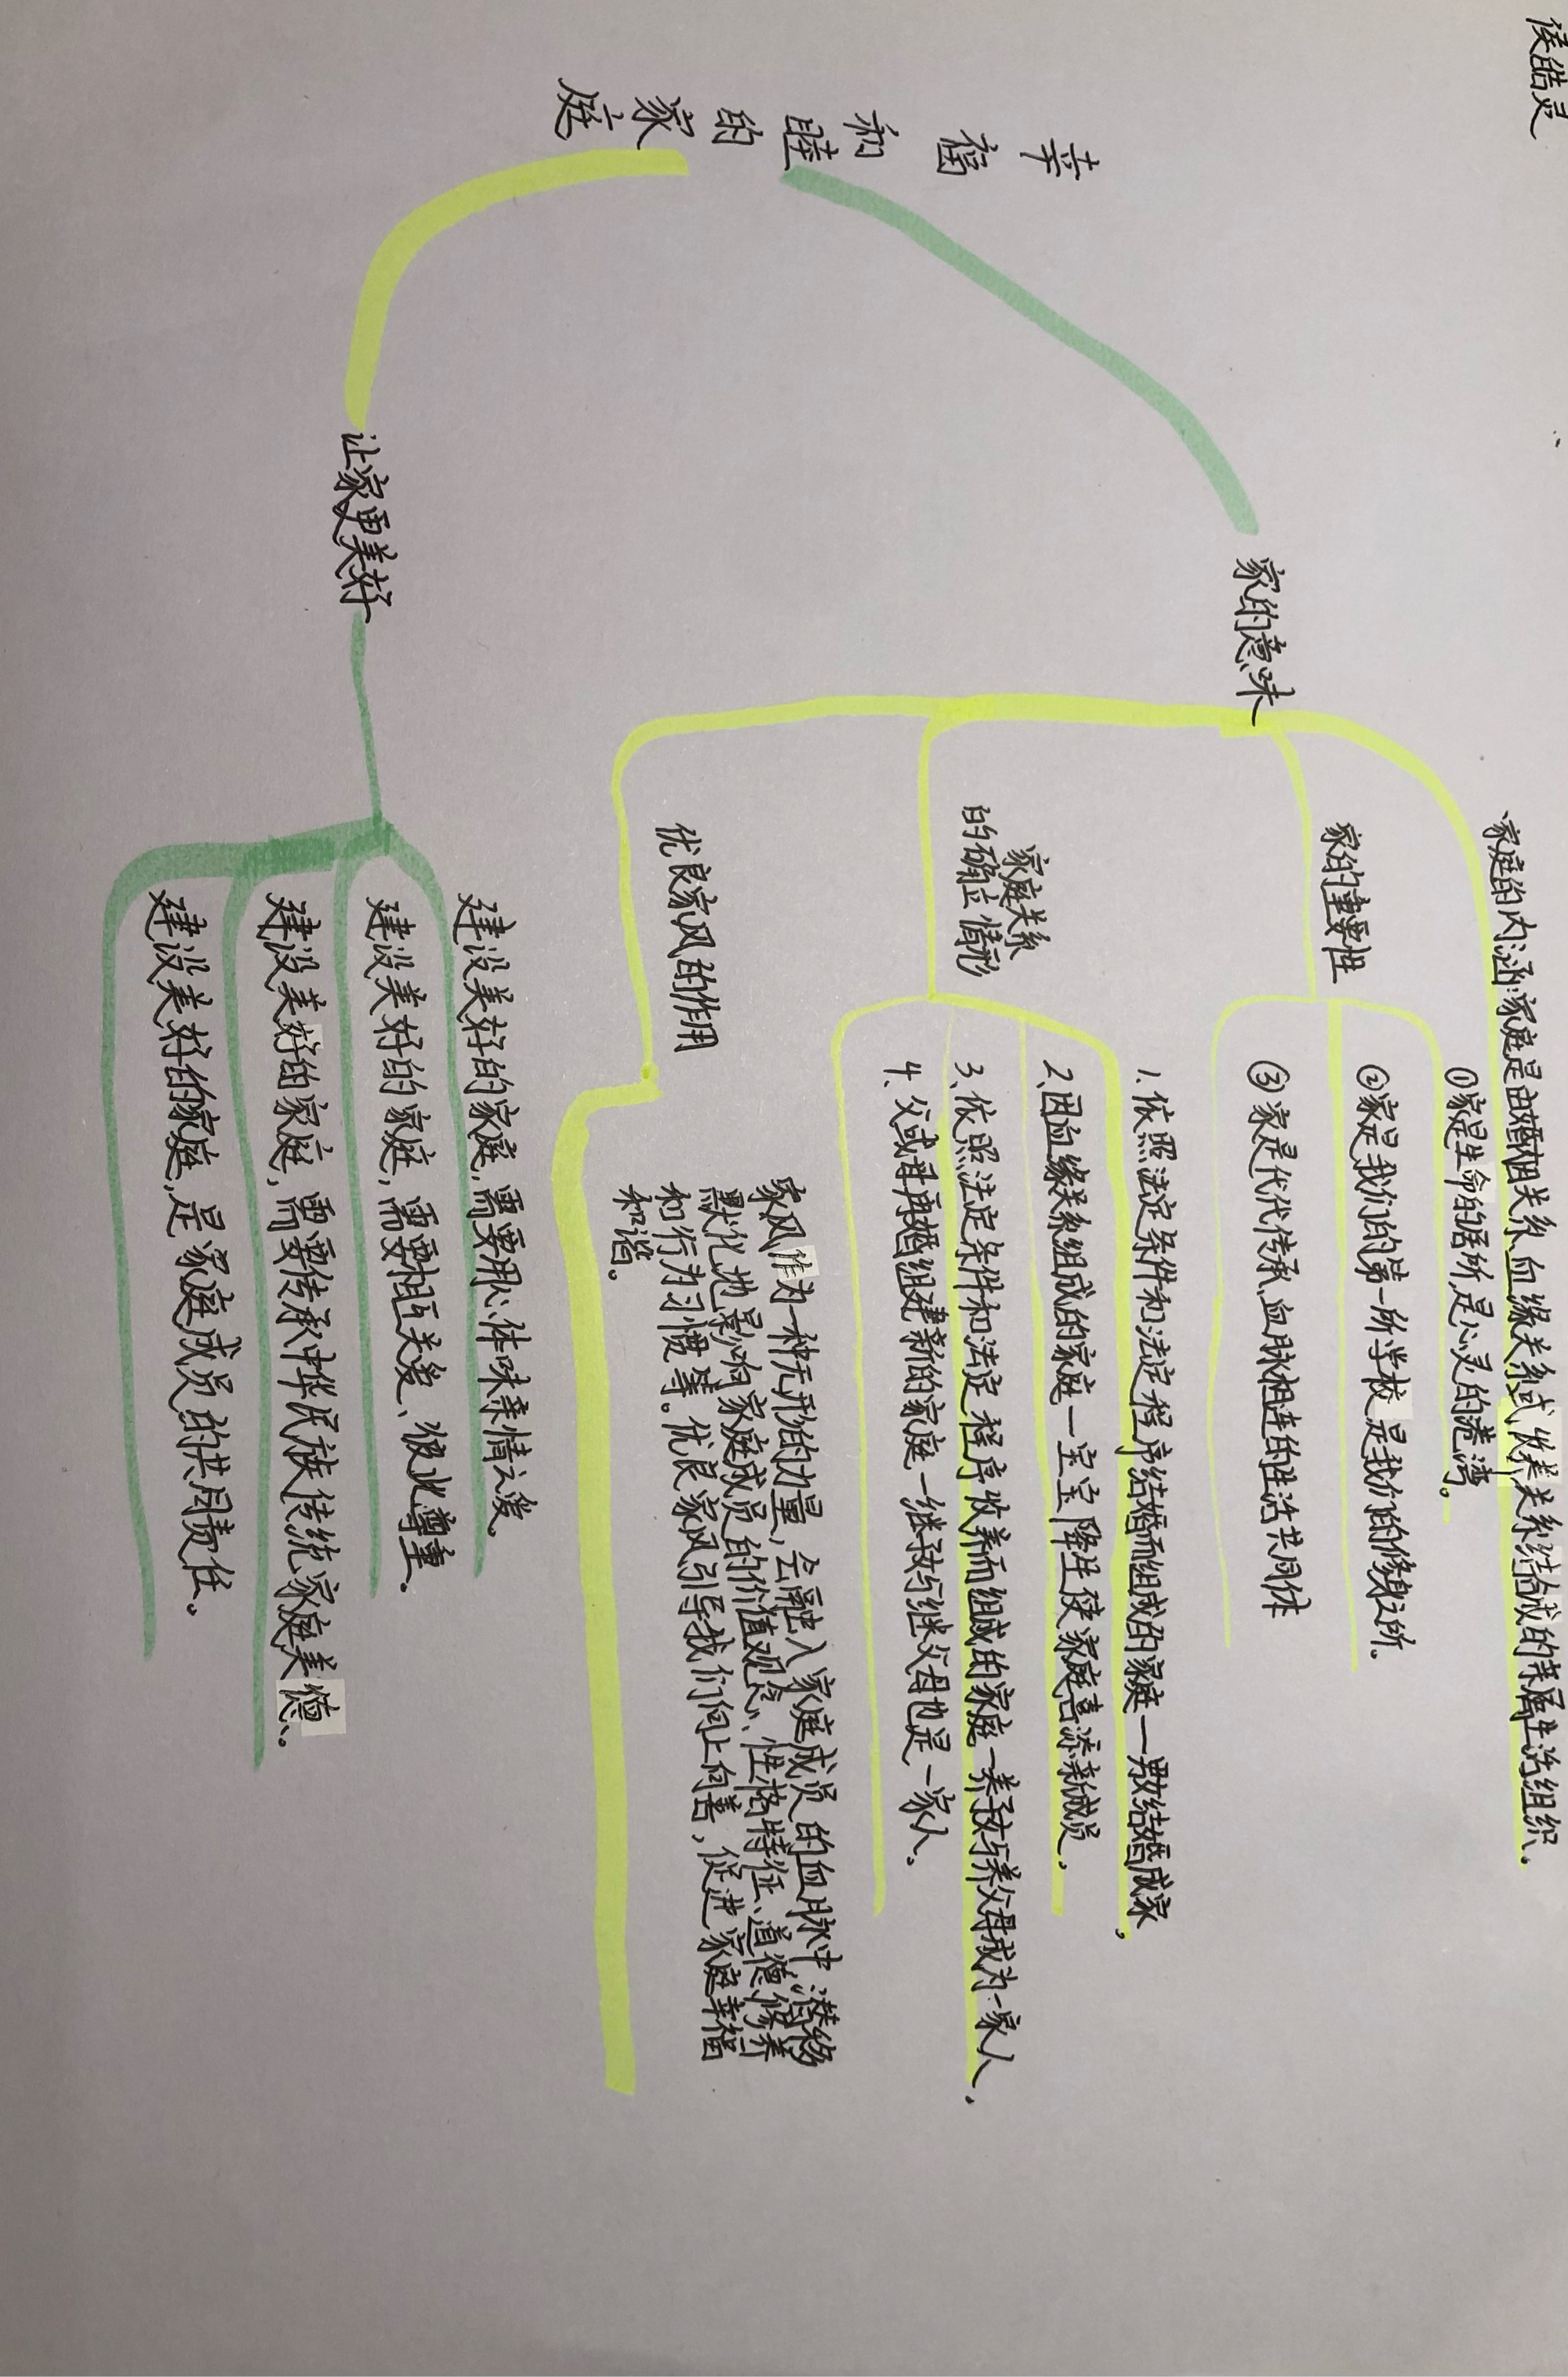 幸福和睦的家庭
家的意味
家庭的内涵:家庭是由婚姻关系、血缘关系或收养关系结合成的亲属生活组织.
家的重要性
①家是生命的居所,是心灵的港湾。
②家是我们的第一所学校,是我们的修身之所.
③家是代代传承、血脉相连的生活共同体
家庭关系
的确立情形
1.依照法定条件和法定程序结婚而组成的家庭—男女结婚成家,
2.因血缘关系组成的家庭—宝宝降生使家庭喜添新成员,
3.依照法定条件和法定程序收养而组成的家庭—养子女与养父母成为一家人.
4.父或母再婚组建新的家庭—继子女与继父母也是一家人.
优良家风的作用
家风作为一种无形的力量,会融入家庭成员的血脉中,潜移
默化地影响家庭成员的价值观念、性格特征、道德修养
和行为习惯等。优良家风引导我们向上向善,促进家庭幸福
和谐。
让家更美好
建设美好的家庭,需要用心体味亲情之爱.
建设美好的家庭,需要相互关爱、彼此尊重.
建设美好的家庭,需要传承中华民族传统家庭美德.
建设美好的家庭,是家庭成员的共同责任.